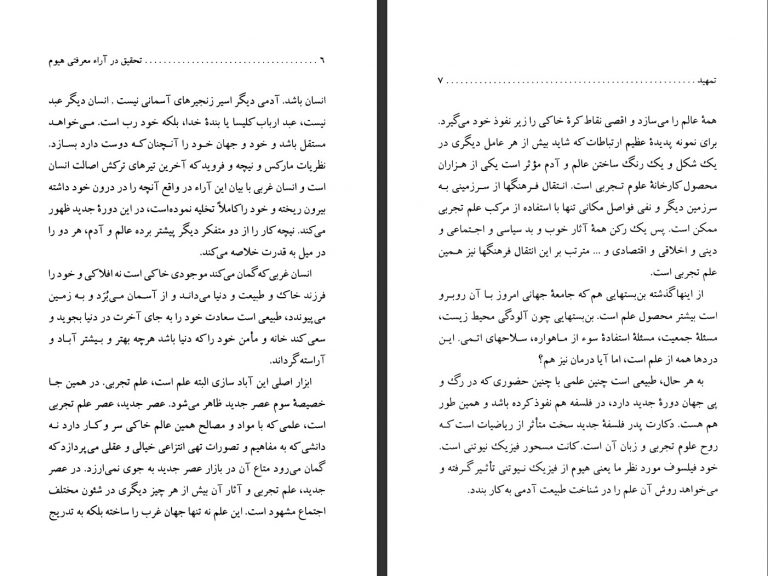 ۶ ..................................... تحقیق در آراء معرفتی هیوم
انسان باشد. آدمی دیگر اسیر زنجیرهای آسمانی نیست. انسان دیگر عبد
نیست، عبد ارباب کلیسا یا بندهٔ خدا، بلکه خود رب است. می‌خواهد
مستقل باشد و خود و جهان خود را آنچنان که دوست دارد بسازد.
نظریات مارکس و نیچه و فروید که آخرین تیرهای ترکش اصالت انسان
است و انسان غربی با بیان این آراء در واقع آنچه را در درون خود داشته
بیرون ریخته و خود را کاملاً تخلیه نموده‌است، در این دورهٔ جدید ظهور
می‌کند. نیچه کار را از دو متفکر دیگر پیشتر برده عالم و آدم، هر دو را
در میل به قدرت خلاصه می‌کند.
انسان غربی که گمان می‌کند موجودی خاکی است نه افلاکی و خود را
فرزند خاک و طبیعت و دنیا می‌داند و از آسمان می‌بُرَد و به زمین
می‌پیوندد، طبیعی است سعادت خود را به جای آخرت در دنیا بجوید و
سعی کند خانه و مأمن خود را که دنیا باشد هرچه بهتر و بیشتر آباد و
آراسته گرداند.
ابزار اصلی این آباد سازی البته علم است، علم تجربی. در همین جا
خصیصهٔ سوم عصر جدید ظاهر می‌شود. عصر جدید، عصر علم تجربی
است، علمی که با مواد و مصالح همین عالم خاکی سر و کار دارد نه
دانشی که به مفاهیم و تصورات تهی انتزاعی خیالی و عقلی می‌پردازد که
گمان می‌رود متاع آن در بازار عصر جدید به جوی نمی‌ارزد. در عصر
جدید، علم تجربی و آثار آن بیش از هر چیز دیگری در شئون مختلف
اجتماع مشهود است. این علم نه تنها جهان غرب را ساخته بلکه به تدریج
تمهید ..................................................... ۷
همهٔ عالم را می‌سازد و اقصی نقاط کرهٔ خاکی را زیر نفوذ خود می‌گیرد.
برای نمونه پدیدهٔ عظیم ارتباطات که شاید بیش از هر عامل دیگری در
یک شکل و یک رنگ ساختن عالم و آدم مؤثر است یکی از هزاران
محصول کارخانهٔ علوم تجربی است. انتقال فرهنگها از سرزمینی به
سرزمین دیگر و نفی فواصل مکانی تنها با استفاده از مرکب علم تجربی
ممکن است. پس یک رکن همهٔ آثار خوب و بد سیاسی و اجتماعی و
دینی و اخلاقی و اقتصادی و ... مترتب بر این انتقال فرهنگها نیز همین
علم تجربی است.
از اینها گذشته بن‌بستهایی هم که جامعهٔ جهانی امروز با آن روبرو
است بیشتر محصول علم است. بن‌بستهایی چون آلودگی محیط زیست،
مسئلهٔ جمعیت، مسئلهٔ استفادهٔ سوء از ماهواره، سلاحهای اتمی. این
دردها همه از علم است، اما آیا درمان نیز هم؟
به هر حال، طبیعی است چنین علمی با چنین حضوری که در رگ و
پی جهان دورهٔ جدید دارد، در فلسفه هم نفوذ کرده باشد و همین طور
هم هست. دکارت پدر فلسفهٔ جدید سخت متأثر از ریاضیات است که
روح علوم تجربی و زبان آن است. کانت مسحور فیزیک نیوتنی است.
خود فیلسوف مورد نظر ما یعنی هیوم از فیزیک نیوتنی تأثیر گرفته و
می‌خواهد روش آن علم را در شناخت طبیعت آدمی به کار بندد.